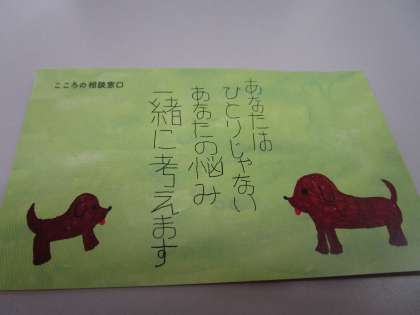 こころの相談窓口
あなたは
ひとりじゃない
あなたの悩み
一緒に考えます